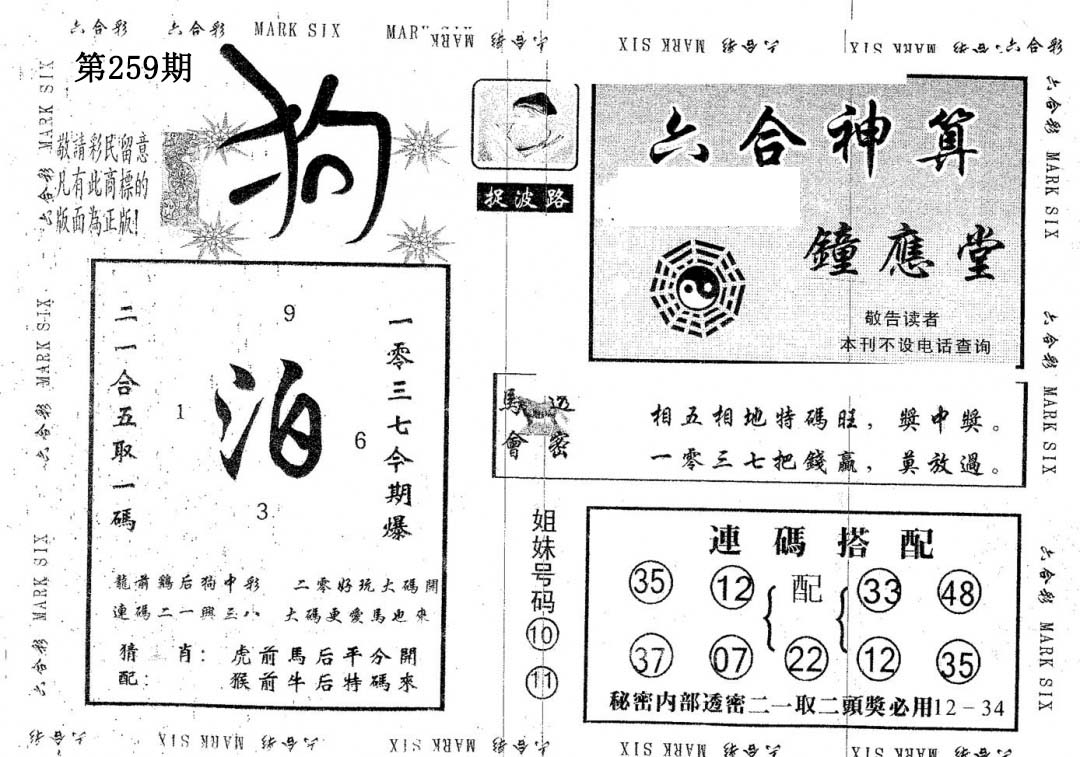 六合彩 六合彩 MARK SIX MARK SIX 六合彩 MARK SIX 六合彩 MARK SIX 六合彩 六合彩
第259期
狗
敬請彩民留意
凡有此商標的
版面為正版!
二一合五取一碼
9
1
泊
6
3
一零三七今期爆
龍前鷄后狗中彩 二零好玩大碼開
連碼二一興三八 大碼更愛馬也來
猜三肖: 虎前馬后平分開
配: 猴前牛后特碼來
捉波路
六合神算
鐘應堂
敬告读者
本刊不设电话查询
馬會透密
相五相地特碼旺，獎中獎。
一零三七把錢贏，莫放過。
姐妹号码
10
11
連碼搭配
35 12 配 33 48
37 07 22 12 35
秘密内部透密二一取二頭獎必用12-34
六合彩 MARK SIX 六合彩 MARK SIX 六合彩 MARK SIX 六合彩 MARK SIX 六合彩
六合彩 MARK SIX 六合彩 MARK SIX 六合彩 MARK SIX
六合彩 MARK SIX 六合彩 MARK SIX 六合彩 MARK SIX 六合彩 MARK SIX 六合彩